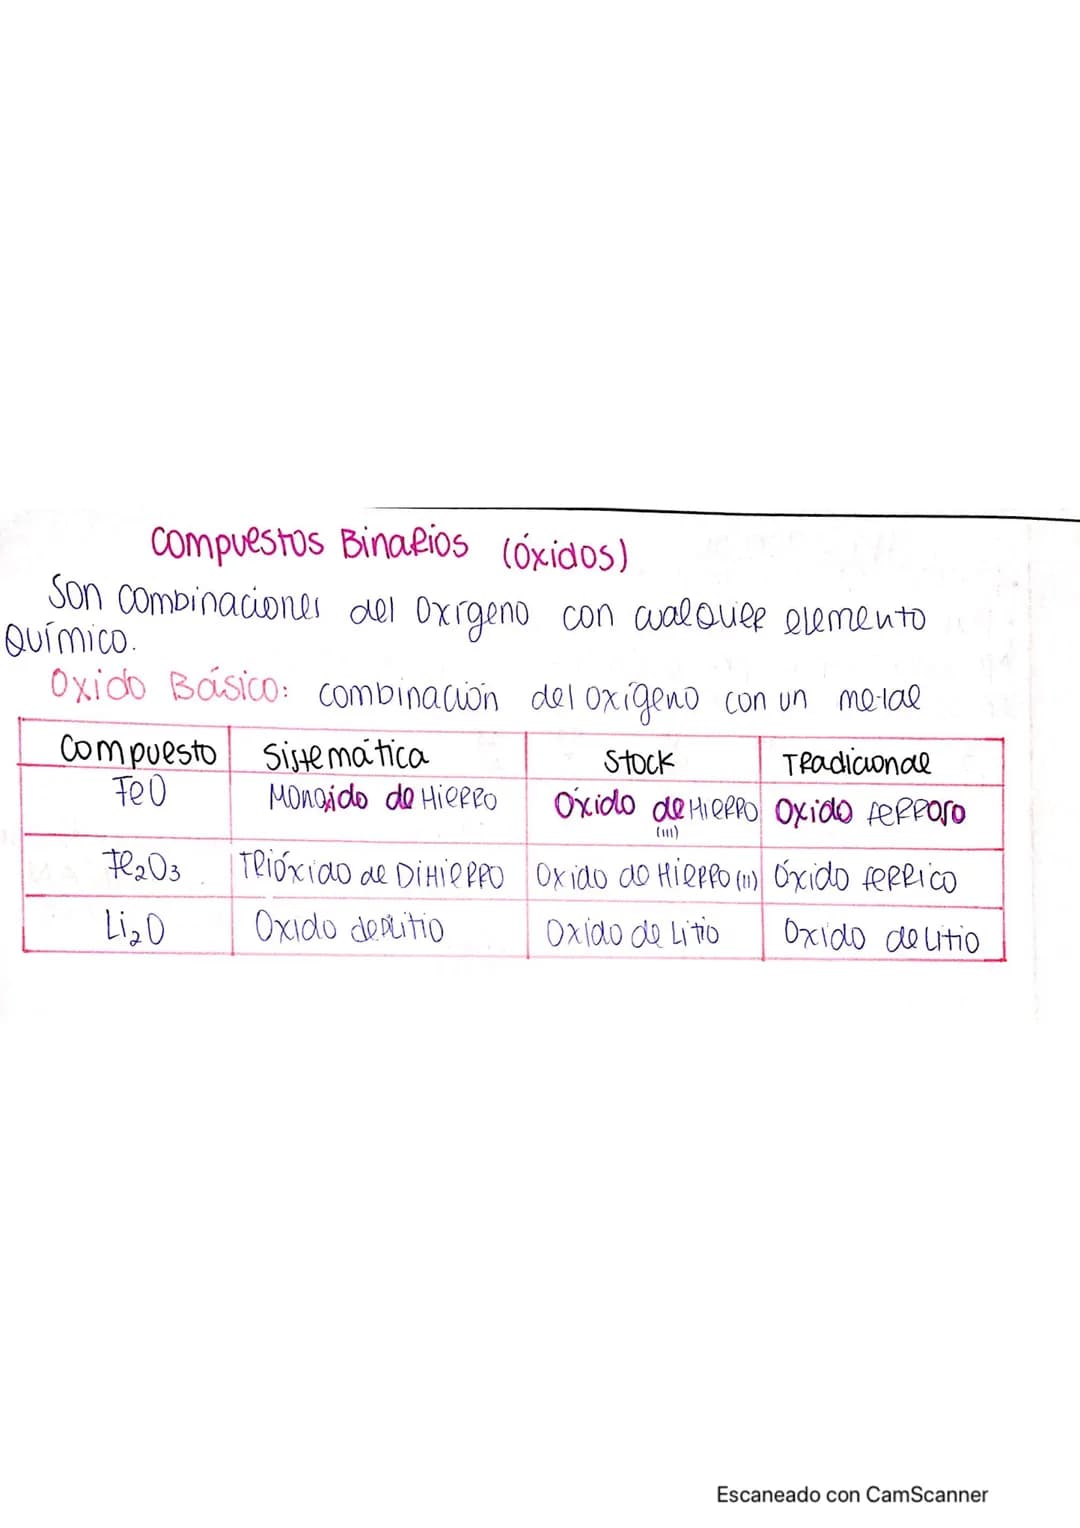 Compuestos Binarios (óxidos)
Son combinaciones del Oxígeno con cualquier elemento
Químico.
Oxido Básico: combinación del oxígeno con un metal
Compuesto Sistemática Stock Tradicional
FeO Monoxido de Hierro Óxido de Hierro (III) Oxido ferroso
Fe₂O₃ Trióxido de DiHierro Oxido de Hierro (II) Óxido ferrico
Li₂O Oxido de Litio Oxido de Litio Oxido de Litio
Escaneado con CamScanner